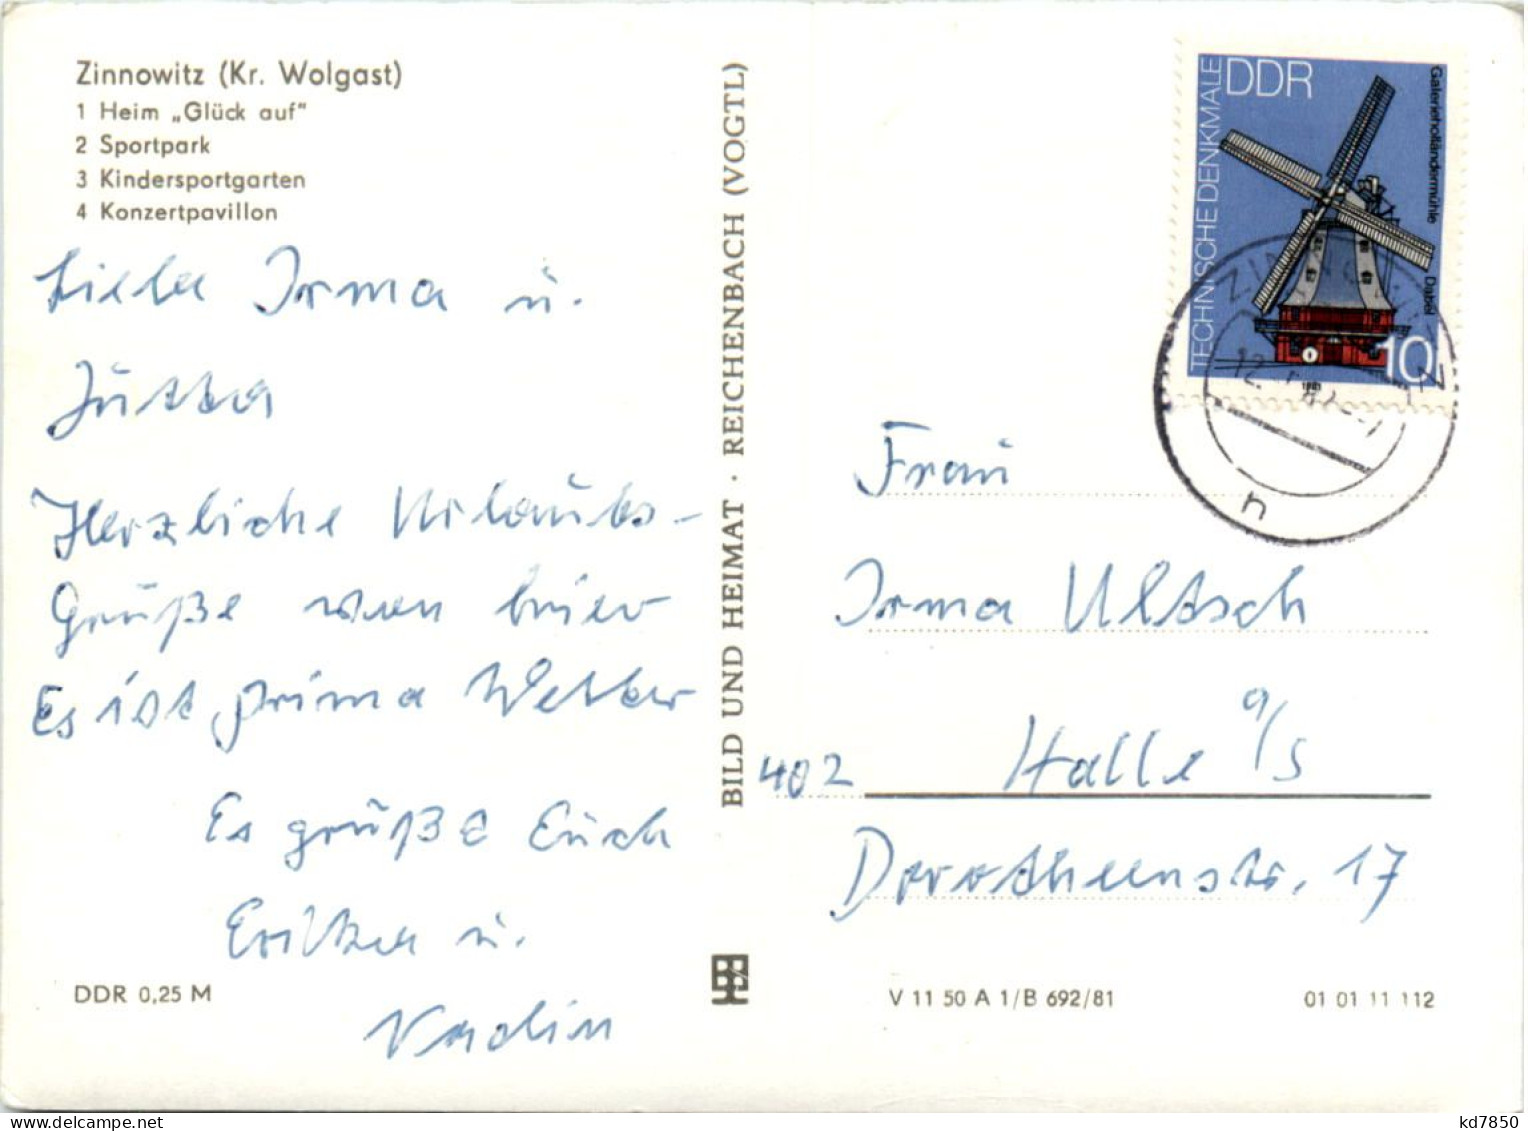 Zinnowitz (Kr. Wolgast)
1 Heim „Glück auf"
2 Sportpark
3 Kindersportgarten
4 Konzertpavillon
Liebe Irma u.
Jutta
Herzliche Urlaubs-
Grüße von hier
Es ist prima Wetter
Es grüße Euch
Erika u.
Nadin
DDR 0,25 M
BILD UND HEIMAT · REICHENBACH (VOGTL)
TECHNISCHE DENKMALE
DDR
Galerieholländermühle Dabel
10
1981
ZINNOWITZ
n
Frau
Irma Ultsch
402 Halle a/S
Dorotheenstr. 17
V 11 50 A 1/B 692/81
01 01 11 112
kd7850